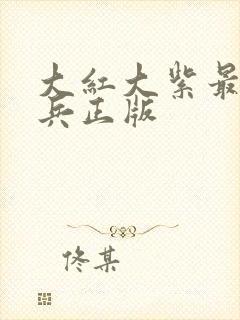 大紅大紫最
兵正版
佟某